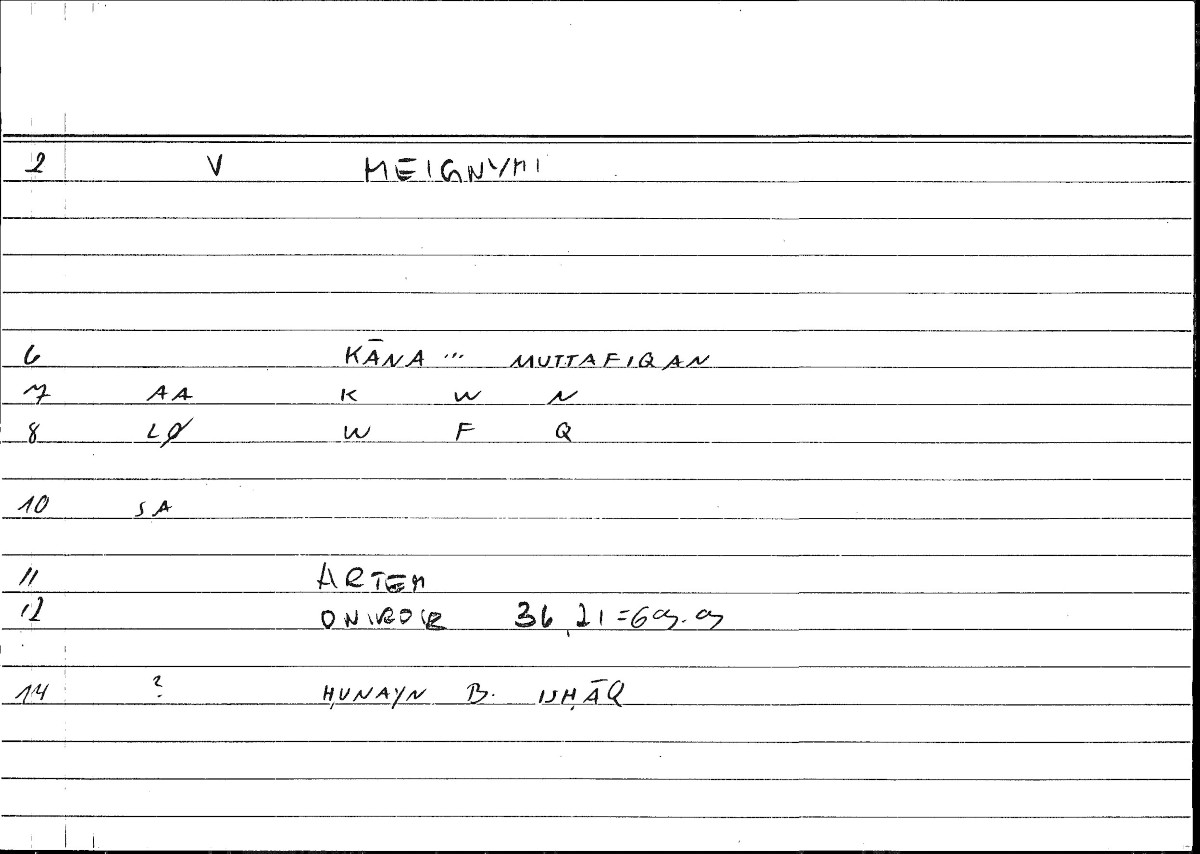 2 V MEIGNYMI
6 KĀNA ... MUTTAFIQAN
7 AA K W N
8 LØ W F Q
10 SA
11 ARTEM
12 ONIROCR 36,21 =
14 ? ḤUNAYN B. ISḤĀQ